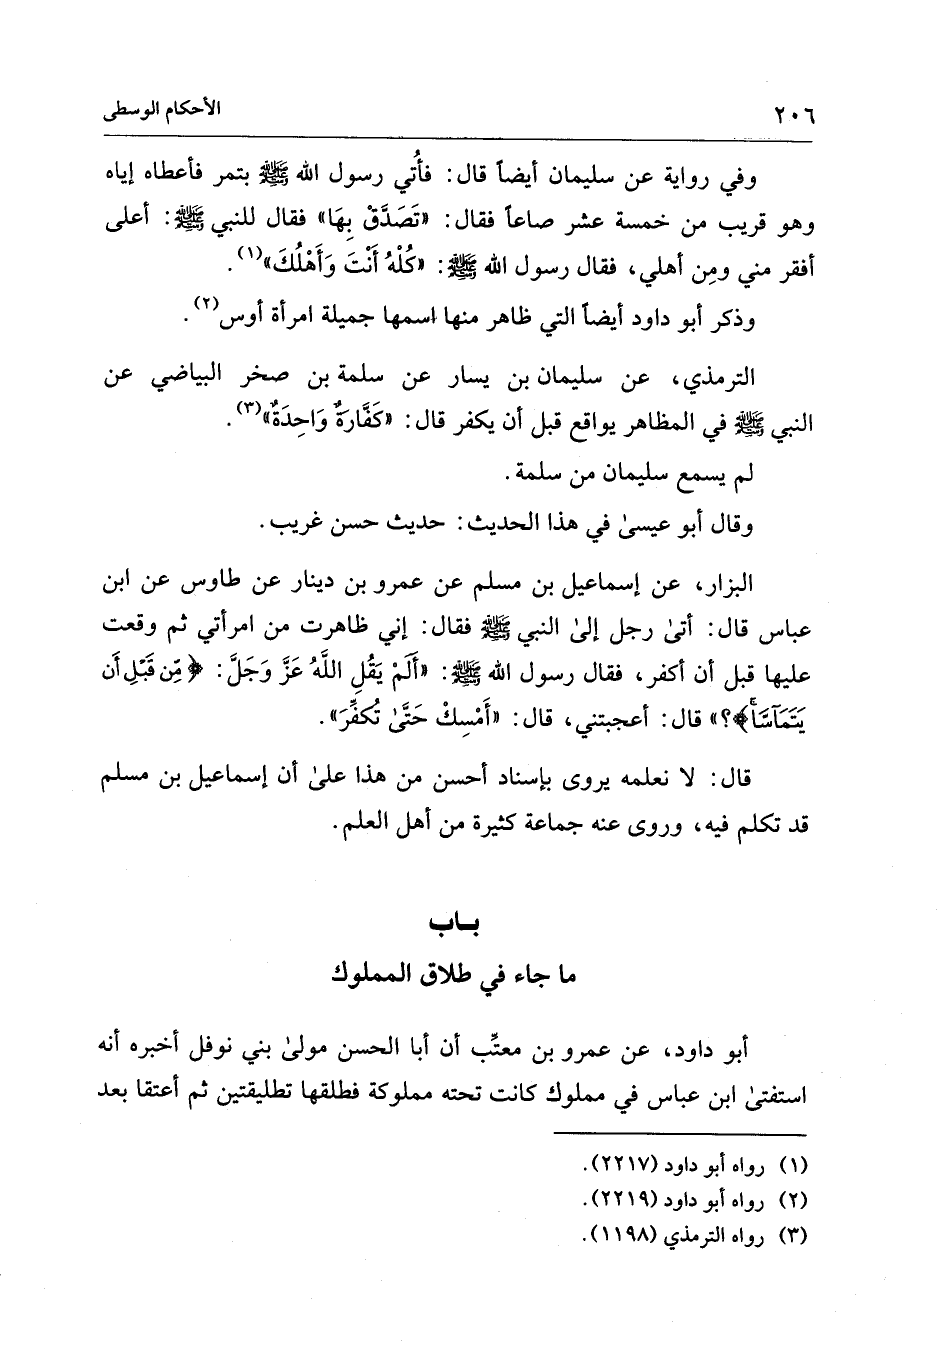 ٢٠٦ الأحكام الوسطى
وفي رواية عن سليمان أيضاً قال: فأُتي رسول الله ﷺ بتمر فأعطاه إياه
وهو قريب من خمسة عشر صاعاً فقال: «تَصَدَّقْ بِهَا» فقال للنبي ﷺ: أعلى
أفقر مني ومِن أهلي، فقال رسول الله ﷺ: «كُلْهُ أَنْتَ وَأَهْلُكَ»(١).
وذكر أبو داود أيضاً التي ظاهر منها اسمها جميلة امرأة أوس(٢).
الترمذي، عن سليمان بن يسار عن سلمة بن صخر البياضي عن
النبي ﷺ في المظاهر يواقع قبل أن يكفر قال: «كَفَّارَةٌ وَاحِدَةٌ»(٣).
لم يسمع سليمان من سلمة.
وقال أبو عيسىٰ في هذا الحديث: حديث حسن غريب.
البزار، عن إسماعيل بن مسلم عن عمرو بن دينار عن طاوس عن ابن
عباس قال: أتىٰ رجل إلىٰ النبي ﷺ فقال: إني ظاهرت من امرأتي ثم وقعت
عليها قبل أن أكفر، فقال رسول الله ﷺ: «أَلَمْ يَقُلِ اللَّهُ عَزَّ وَجَلَّ: ﴿مِّن قَبْلِ أَن
يَتَمَآسَّا﴾؟» قال: أعجبتني، قال: «أَمْسِكْ حَتَّىٰ تُكفِّرَ».
قال: لا نعلمه يروى بإسناد أحسن من هذا علىٰ أن إسماعيل بن مسلم
قد تكلم فيه، وروى عنه جماعة كثيرة من أهل العلم.
بـاب
ما جاء في طلاق المملوك
أبو داود، عن عمرو بن معتِّب أن أبا الحسن مولىٰ بني نوفل أخبره أنه
استفتىٰ ابن عباس في مملوك كانت تحته مملوكة فطلقها تطليقتين ثم أعتقا بعد
(١) رواه أبو داود (٢٢١٧).
(٢) رواه أبو داود (٢٢١٩).
(٣) رواه الترمذي (١١٩٨).